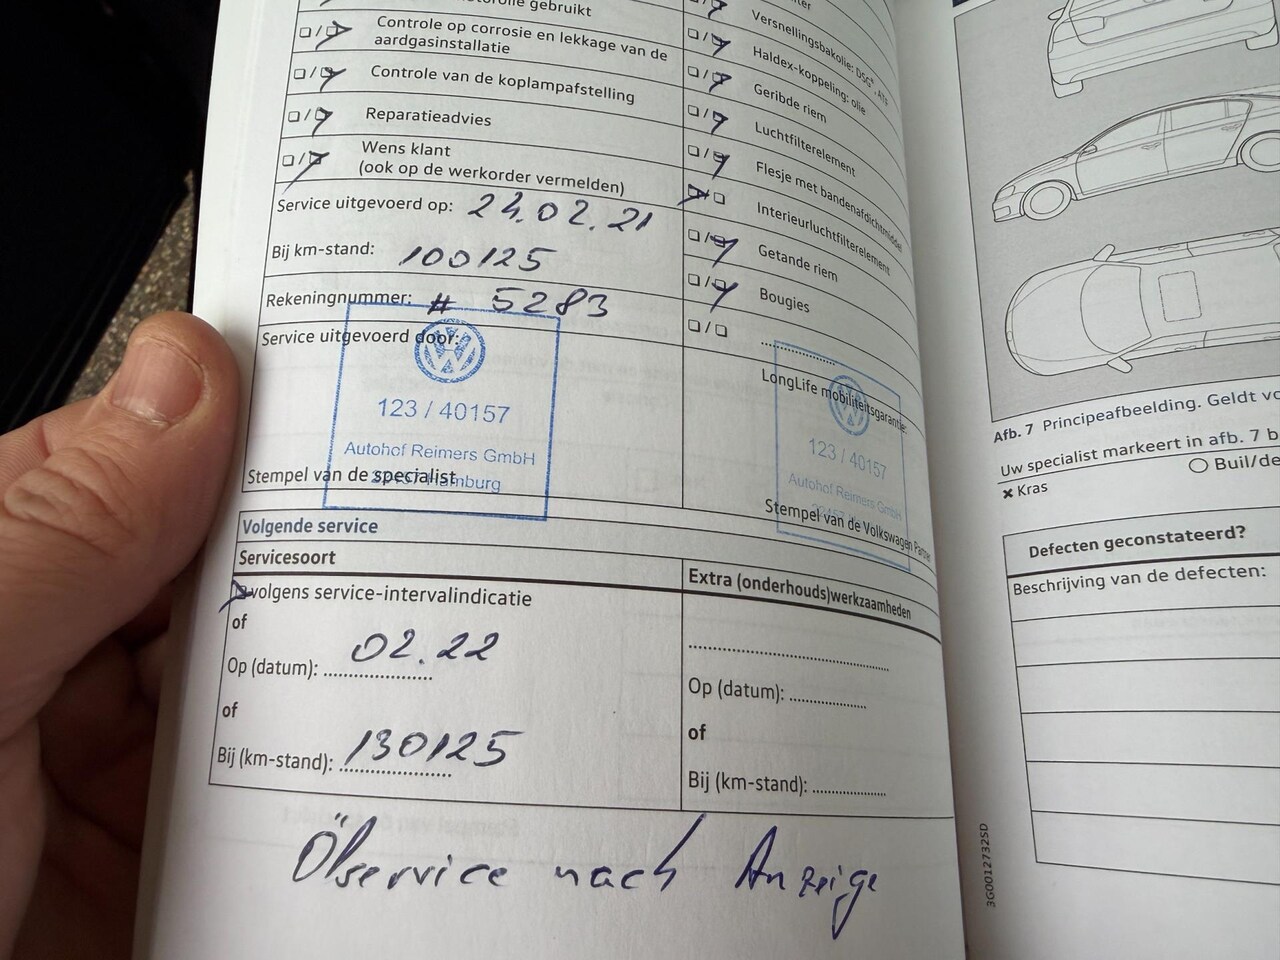 gebruikt
Controle op corrosie en lekkage van de
aardgasinstallatie
Controle van de koplampafstelling
Reparatieadvies
Wens klant
(ook op de werkorder vermelden)
Service uitgevoerd op: 24.02.21
Bij km-stand: 100125
Rekeningnummer: # 5283
Service uitgevoerd door:
123 / 40157
Autohof Reimers GmbH
Stempel van de specialist
Versnellingsbakolie: DSG®, ATs
Haldex-koppeling: olie
Geribde riem
Luchtfilterelement
Flesje met bandenafdichtmiddel
Interieurluchtfilterelement
Getande riem
Bougies
LongLife mobiliteitsgarantie:
123 / 40157
Autohof Reimers GmbH
Stempel van de Volkswagen Partner
Volgende service
Servicesoort
volgens service-intervalindicatie
of
Op (datum): 02.22
of
Bij (km-stand): 130125
Extra (onderhouds)werkzaamheden
Op (datum):
of
Bij (km-stand):
Ölservice nach Anzeige
Afb. 7 Principeafbeelding. Geldt
Uw specialist markeert in afb. 7
Buil/de
Kras
Defecten geconstateerd?
Beschrijving van de defecten:
3G0012732SD